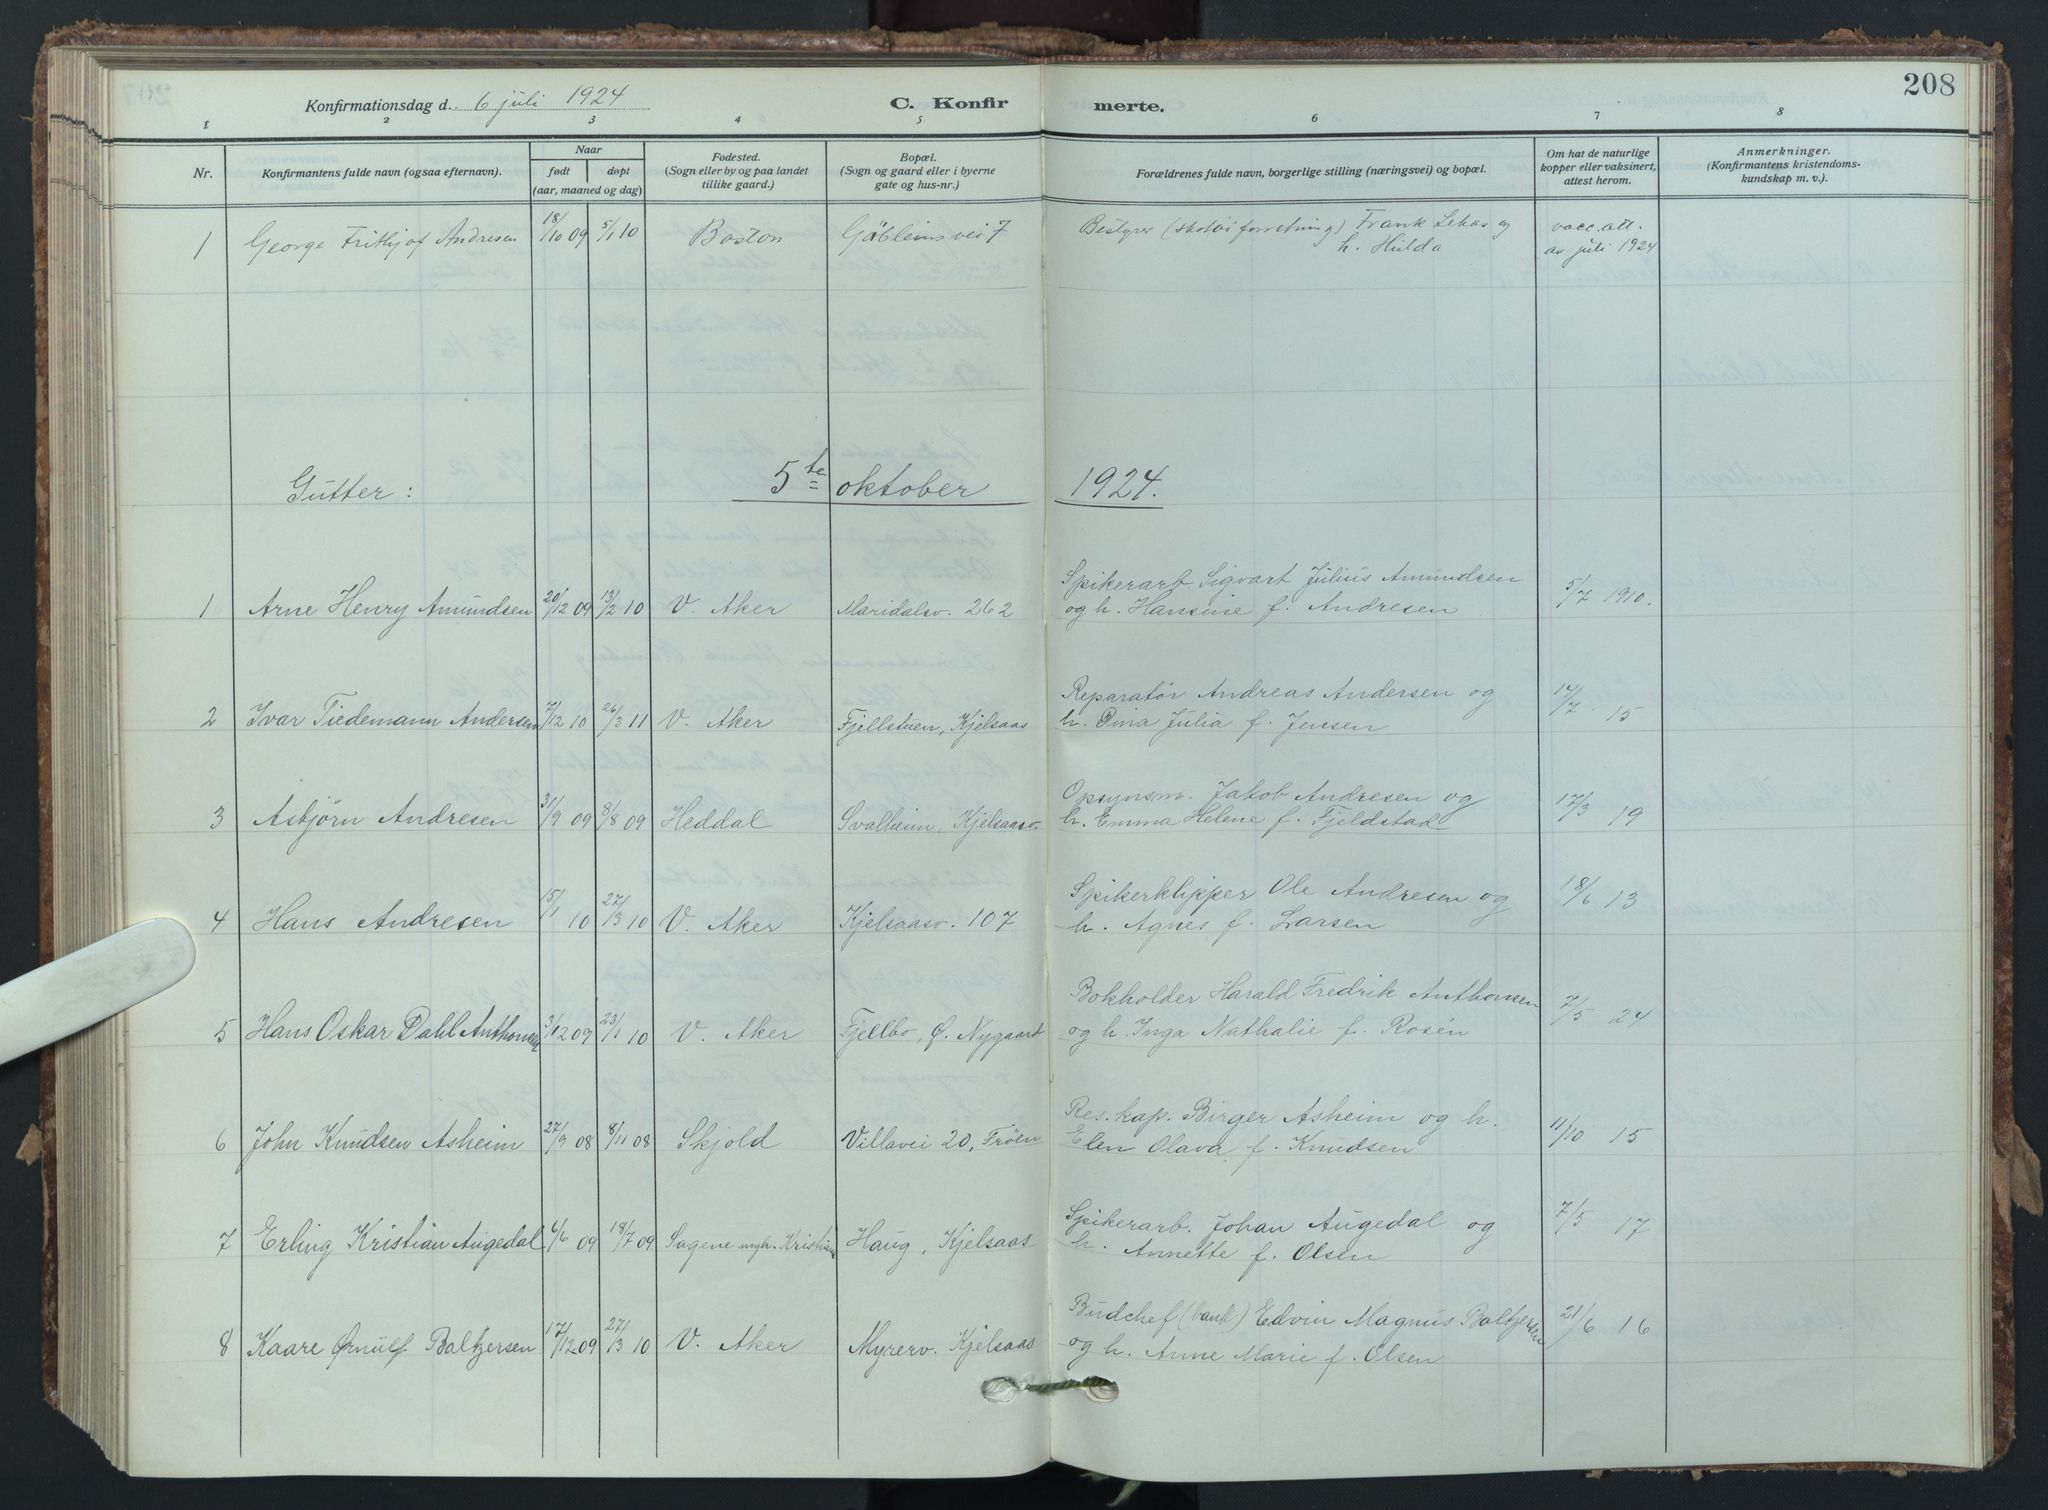 208
Konfirmationsdag d. 6 juli 1924
C. Konfirmerte.
1 2 3 4 5 6 7 8
Nr.
Konfirmantens fulde navn (ogsaa efternavn).
Naar
født døpt
(aar, maaned og dag)
Fødested.
(Sogn eller by og paa landet
tillike gaard.)
Bopæl.
(Sogn og gaard eller i byerne
gate og hus-nr.)
Forældrenes fulde navn, borgerlige stilling (næringsvei) og bopæl.
Om hat de naturlige
kopper eller vaksinert,
attest herom.
Anmerkninger.
(Konfirmantens kristendoms-
kundskap m. v.).
1 George Frithjof Andresen 18/10 09 5/1 10 Boston vei 7 Bestyrer (skotøiforretning) Frank og
h. Hulda
vacc. att.
av juli 1924
Gutter: 5te oktober 1924.
Spikerarb Sigvart Julius Amundsen
1 Arne Henry Amundsen 20/12 09 13/2 10 V. Aker Maridalsv. 262 og h. Hansine f. Andresen 5/7 1910.
Reparatør Andreas Andersen og
2 Ivar Tiedemann Andersen 7/12 10 26/3 11 V. Aker Fjellstuen, Kjelsaas h. Julia f. Jensen 14/7 15
Opsynsm. Jakob Andresen og
3 Asbjørn Andresen 09 8/8 09 Heddal Svalheim, Kjelsaasv. h. Emma Helene f. Fjeldstad 17/3 19
Spikerklipper Ole Andresen og
4 Hans Andresen 15/1 10 27/3 10 V. Aker Kjelsaasv. 107 h. Agnes f. Larsen 18/6 13
Bokholder Harald Fredrik Anthonsen
5 Hans Oskar Dahl Anthonsen 3/12 09 23/1 10 V. Aker Fjellbo, Ø. Nygaart og h. Inga Nathalie f. Rosén 7/5 24
Res. kap. Birger Asheim og h.
6 John Knudsen Asheim 27/9 08 8/11 08 Skjold Villavei 20, Frøen Elen Olava f. Knudsen 11/10 15
Spikerarb. Johan Augedal og
7 Erling Kristian Augedal 6/6 09 18/7 09 Sagene mgh. Kristiania Haug, Kjelsaas h. Annette f. Olsen 7/5 17
Budchef (bank) Edvin Magnus Baltzersen
8 Kaare Ørnulf Baltzersen 17/12 09 27/3 10 V. Aker Myrerv. Kjelsaas og h. Anne Marie f. Olsen 21/6 16